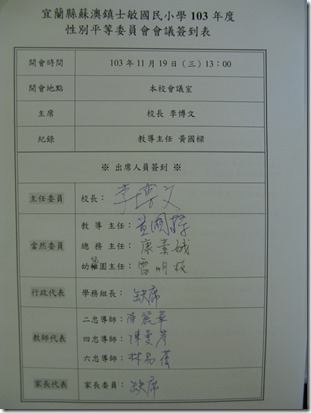 宜蘭縣蘇澳鎮士敏國民小學 103 年度
性別平等委員會會議簽到表
開會時間 103 年 11 月 19 日（三）13：00
開會地點 本校會議室
主席 校長 李博文
紀錄 教導主任 黃國樑
※ 出席人員簽到 ※
主任委員 校長：李博文
當然委員 教導主任：黃國樑
總務主任：康
幼兒園主任：
行政代表 學務組長：缺席
教師代表 二忠導師：
四忠導師：陳
六忠導師：林
家長代表 家長委員：缺席